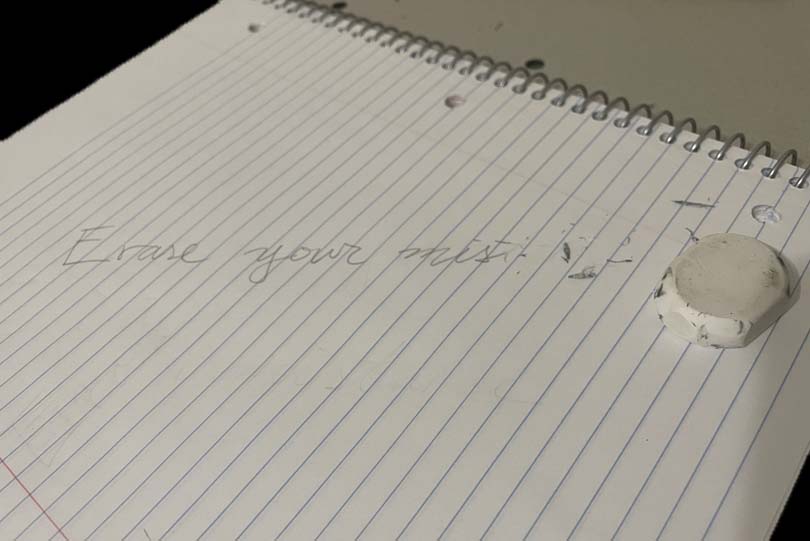 Erase your mis